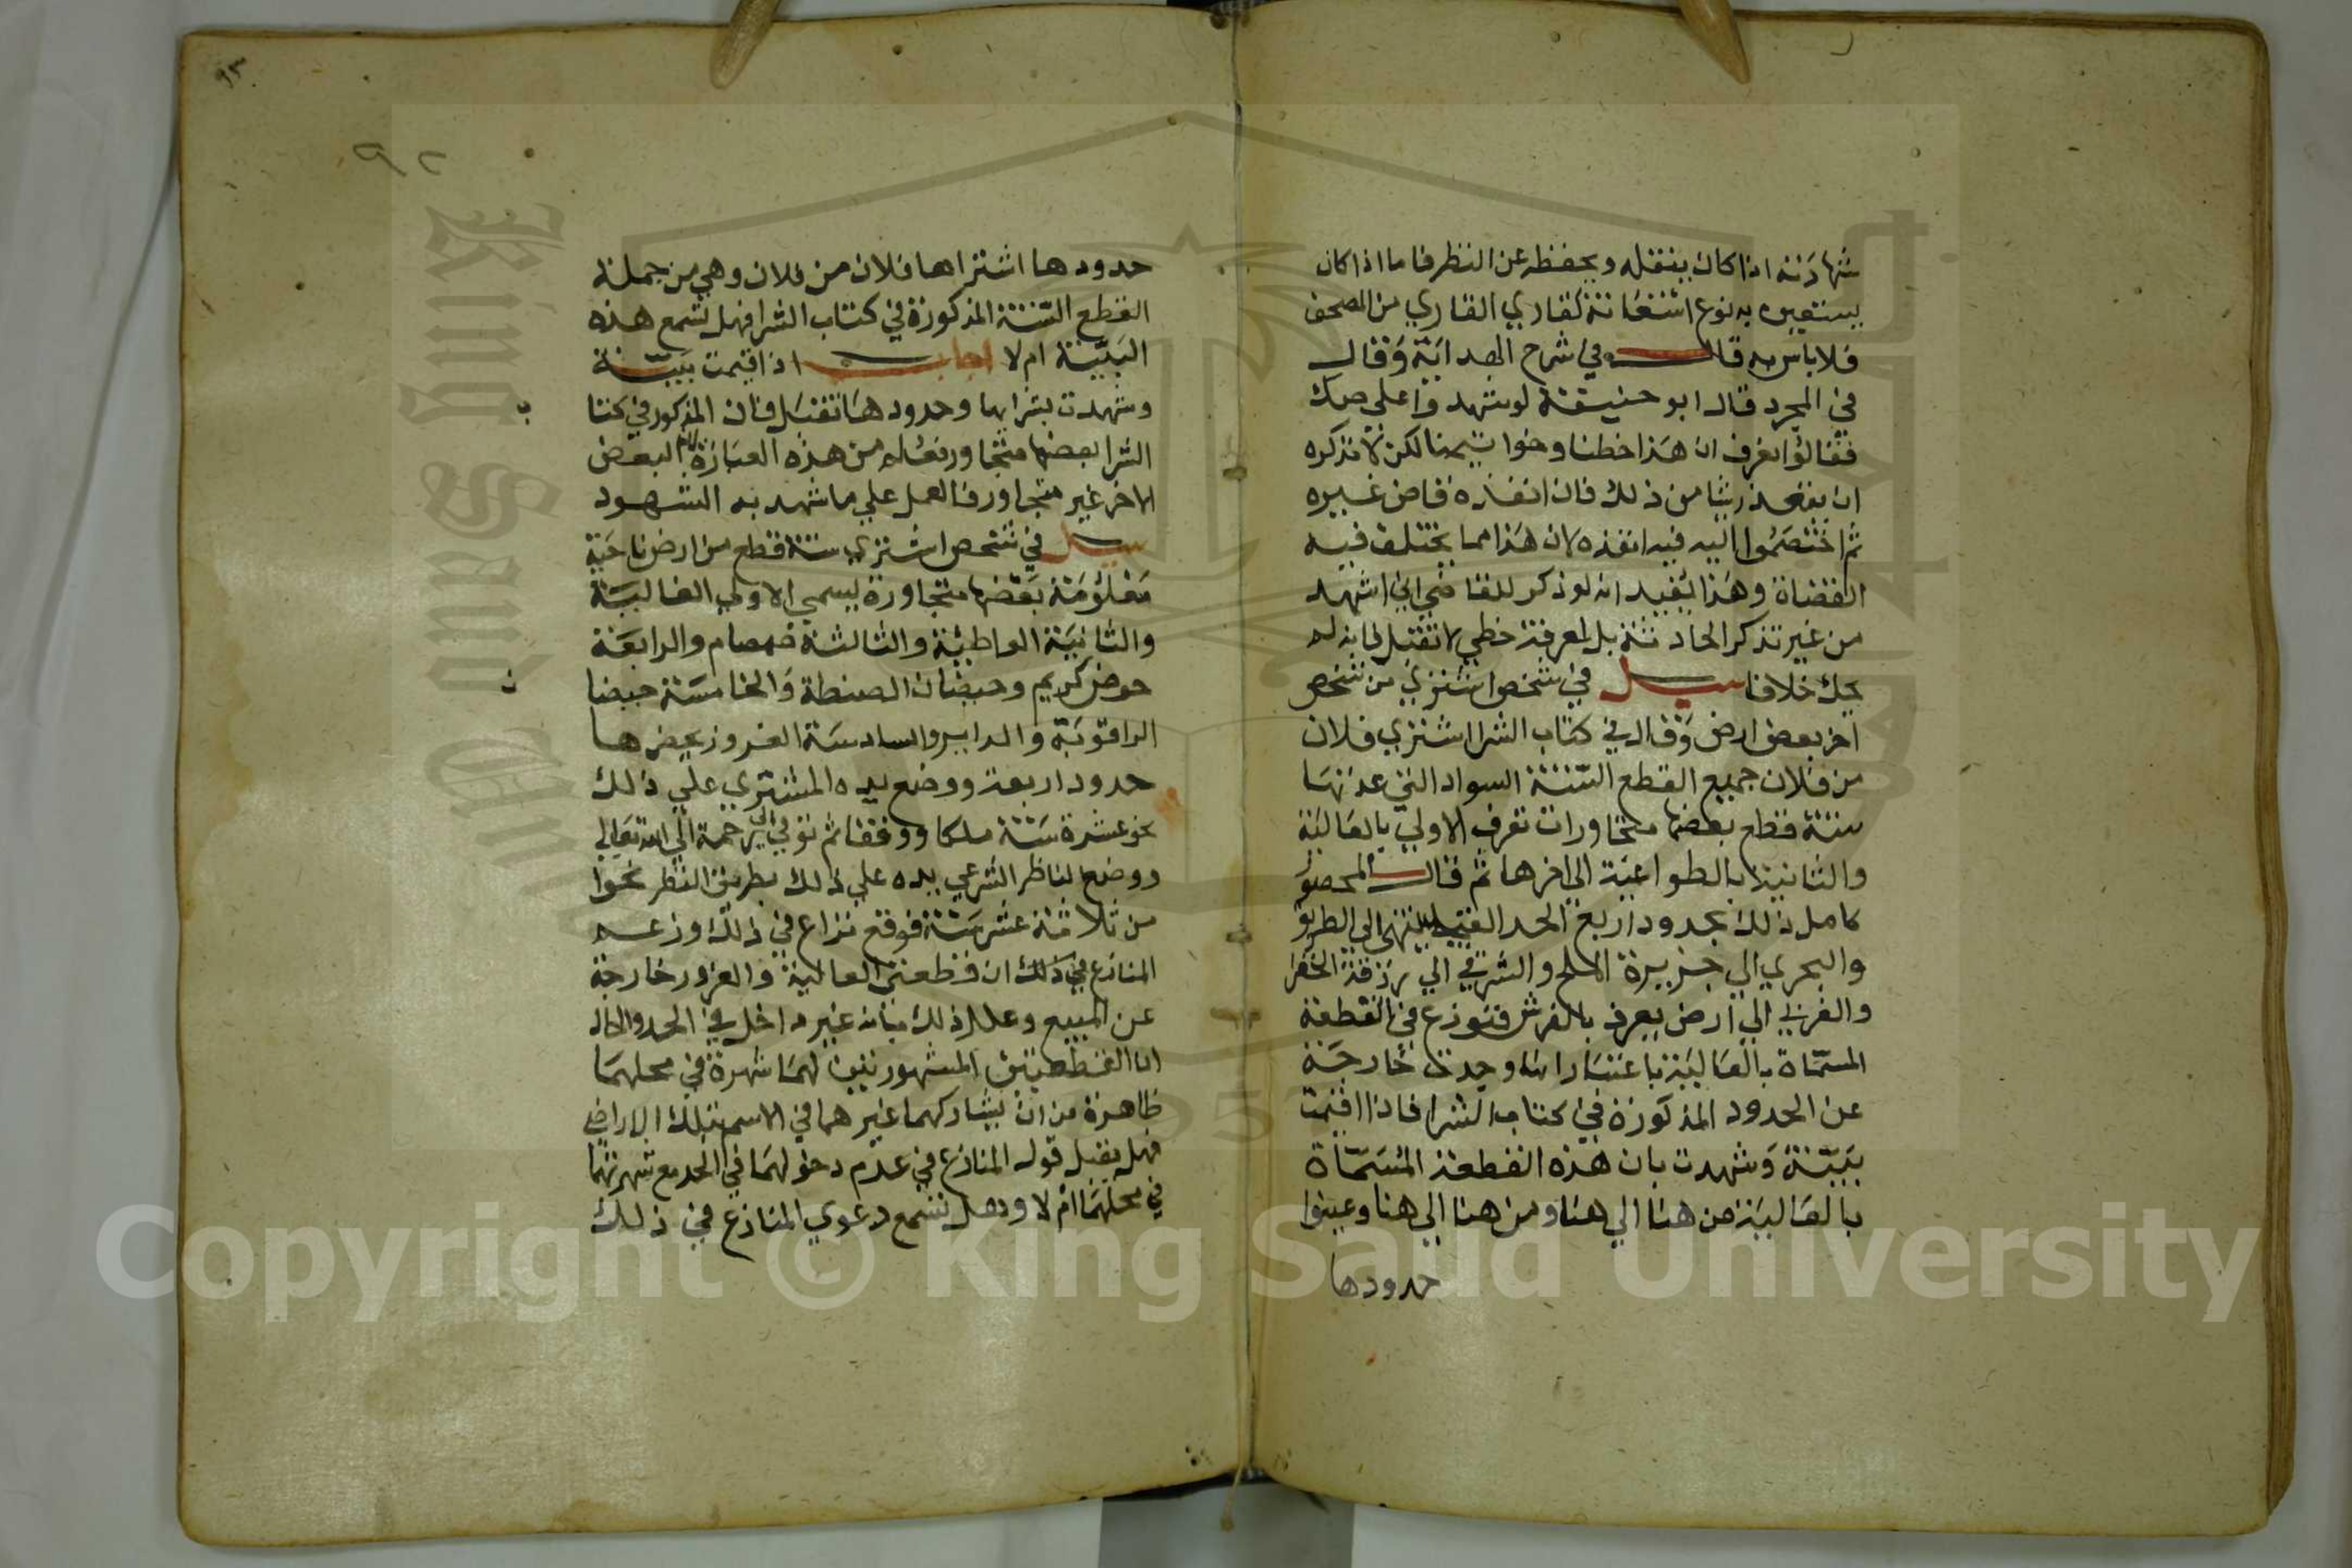 شهادته اذا كان ينقله ويحفظه عن النظر فاما اذا كان
يستعين به نوع استعانة كقاري القاري من المصحف
فلا باس به قال في شرح الهداية وقال
في المجرد قال ابو حنيفة لو شهدوا علي صك
فقالوا نعرف ان هذا خطنا وخواتيمنا لكن لا نذكره
من ذلك فان انفذه قاض غيره
ثم اختصموا اليه فيه انفذه لان هذا مما يختلف فيه
القضاة وهذا يفيد انه لو ذكر للقاضي اني اشهد
من غير تذكر الحادثة بل لمعرفة خطي لا تقبل
خلافا سيل في شخص اشتري من شخص
اخر بعض ارض وقال في كتاب الشرا اشتري فلان
من فلان جميع القطع الستة السواد التي عدتها
ستة قطع بعضها متجاورات تعرف الاولي بالعالية
والثانية بالطواعية الي اخرها ثم قال المحصور
كامل ذلك بحدود اربع الحد القبلي ينتهي الي الطريق
والبحري الي جزيرة الملح والشرقي الي رزقة
والغربي الي ارض يعرف بالفرش فنوزع في القطعة
المسماة بالعالية باعتبار انها وجدت خارجة
عن الحدود المذكورة في كتاب الشرا فاذا اقيمت
ببينة وشهدت بان هذه القطعة المسماة
بالعالية من هنا الي هنا ومن هنا الي هنا وعينوا
حدودها
٩٣
٩٢
حدودها اشتراها فلان من فلان وهي من جملة
القطع الستة المذكورة في كتاب الشرا فهل تسمع هذه
البينة ام لا اجاب اذا اقيمت بينة
وشهدت بشرايها وحدودها تقبل فان المذكور في كتا
ب
الشرا بعضها متجاور من هذه العبارة البعض
الاخر غير متجاور فالعمل علي ما شهد به الشهود
سيل في شخص اشتري ستة قطع من ارض ناحية
معلومة بعضها متجاورة ليسمي الاولي العالية
والثانية الواطية والثالثة والرابعة
حوض كريم وحيضان الصنطة والخامسة حيضا
ن
والسادسة الغروز يحضرها
حدود اربعة ووضع يده المشتري علي ذلك
نحو عشرة سنة ملكا ووقفا ثم توفي الي رحمة الله تعالي
ووضع الناظر الشرعي يده علي ذلك بطريق النظر نحوا
من ثلاثة عشر سنة فوقع نزاع في ذلك وزعم
المنازع في ذلك ان قطعتي العالية والغروز خارجة
عن المبيع وعلل ذلك بانه غير داخل في الحد والحال
ان القطعتين المشهورتين لهما شهرة في محلهما
ظاهرة من ان يشاركهما غيرهما في الاسم بتلك الاراضي
فهل يقبل قول المنازع في عدم دخولهما في الحد مع شهرتهما
في محلهما ام لا وهل تسمع دعوي المنازع في ذلك
Copyright © King Saud University